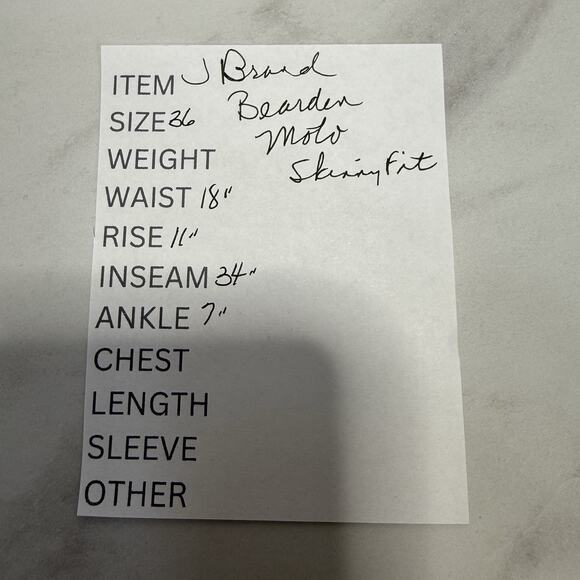 ITEM J Brand
SIZE 36 Bearden
Moto
WEIGHT Skinny Fit
WAIST 18"
RISE 11"
INSEAM 34"
ANKLE 7"
CHEST
LENGTH
SLEEVE
OTHER